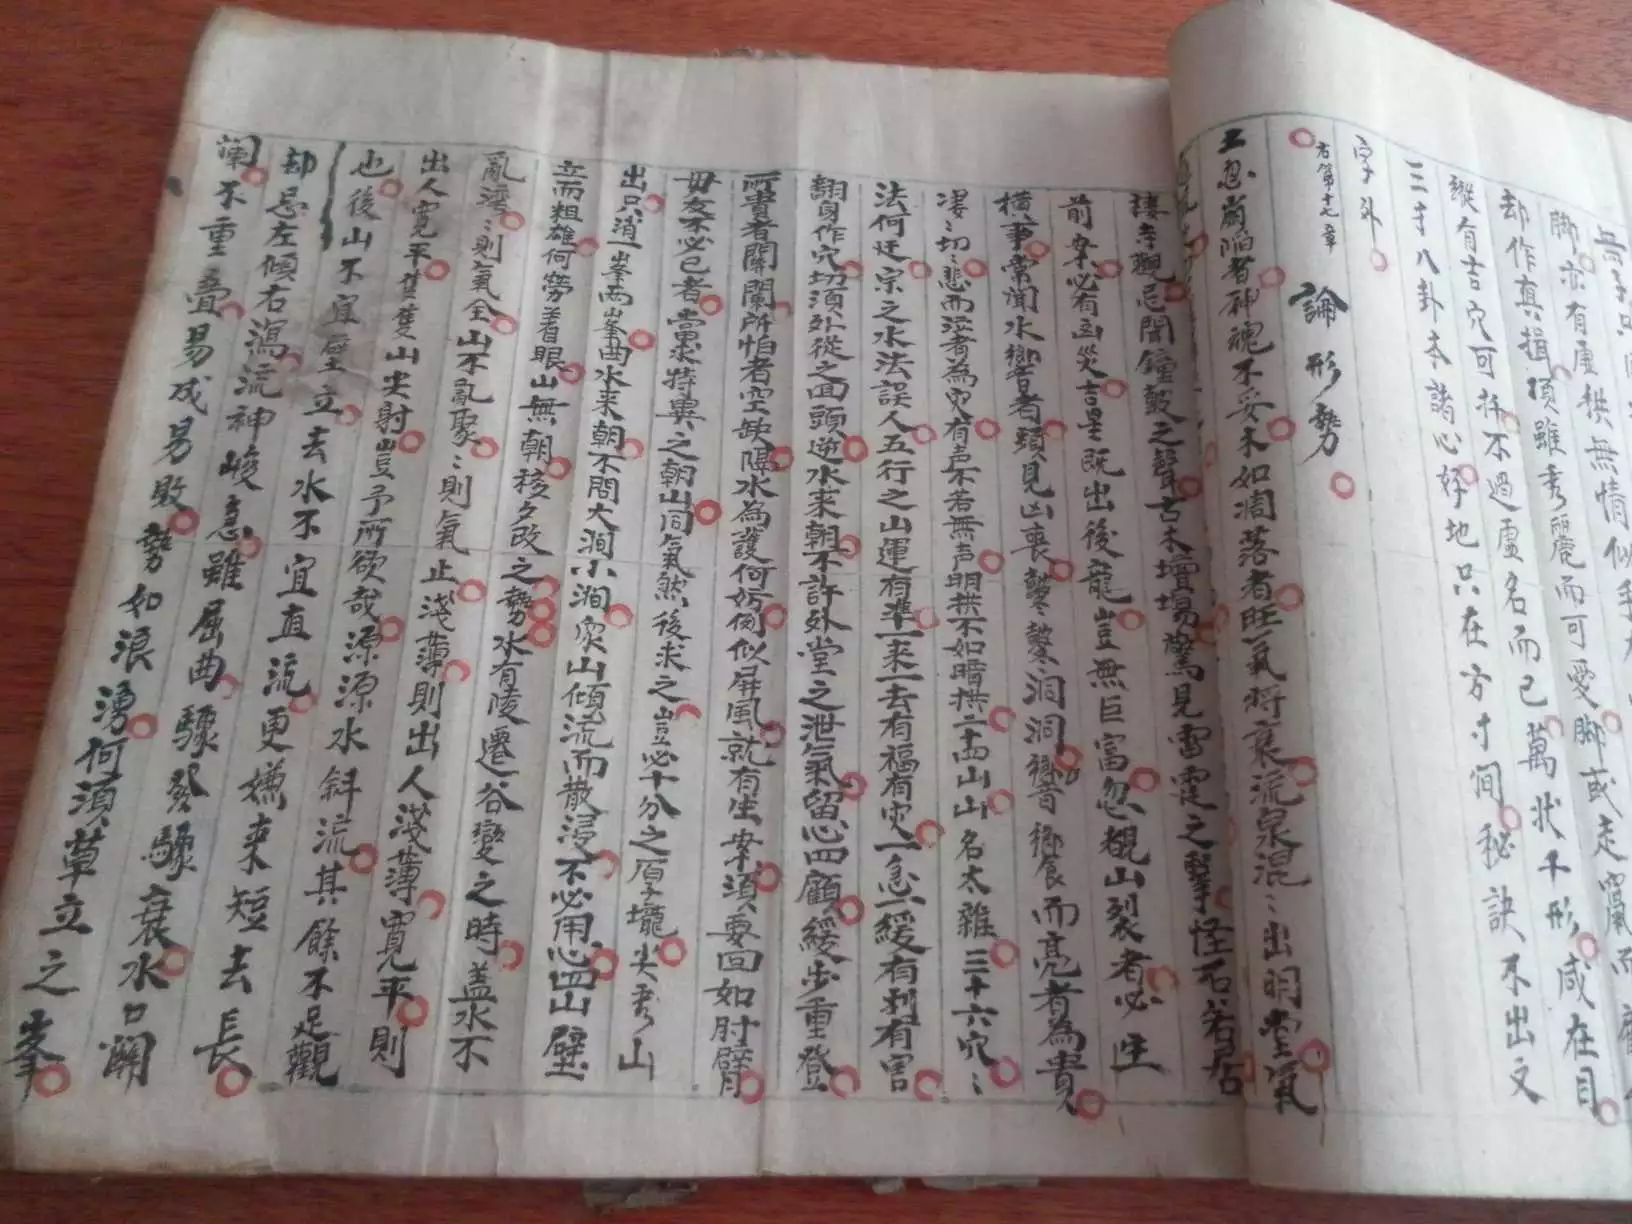 脚亦有虛拱無情似手
却作真揖頂雖秀麗而可愛脚或走竄而
縱有吉穴可扦不過虛名而已萬狀千形咸在目
三才八卦本諸心好地只在方寸間秘訣不出文
字外
右第十七章
論形勢
土忽崩陷者神魂不妥木如凋落者旺氣將衰流泉混〻出明堂氣
棲寺觀忌聞鐘鼓之聲古木壇場驚見雷霆之擊怪石若居
前案必有凶災吉星既出後龍豈無巨富忽覩山裂者必生
橫事常聞水響者頻見凶喪鼕鼕洞洞響而亮者為貴
凄〻切〻悲而泣者為災有声不若無声明拱不如暗拱二十四山山名太雜三十六穴〻
法何迂宗之水法誤人五行之山運有準一来一去有福有災一急一緩有利有害
翻身作穴切須外從之回頭逆水来朝不許外堂之泄氣留心四顧緩步重登
所貴者關闌所怕者空缺隔水為護何妨倒似屏風就有生案須要回如肘臂
毋友不必己者當求特異之朝山同氣然後求之豈必十分之厚壠尖秀山
出只消一峯兩峯曲水来朝不問大澗小澗衆山傾流而散浸不必用心四山壁
立而粗雄何勞着眼山無朝移夕改之勢水有陵遷谷變之時蓋水不
亂灣〻則氣全山不亂聚〻則氣止淺薄則出人淺薄寬平則
出人寬平隻隻山尖射豈予所欲哉源源水斜流其餘不足觀
也後山不宜壁立去水不宜直流更嫌来短去長
却忌左傾右瀉流神峻急雖屈曲驟發驟衰水口關
闌不重疊易成易敗勢如浪湧何須草立之峯